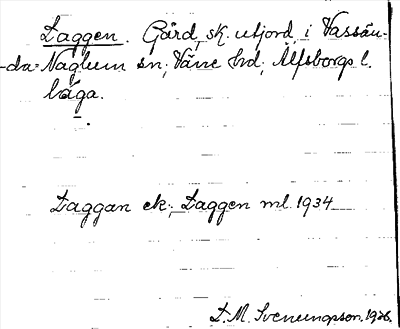 Laggen. Gård, sk. utjord i Vassän-
-da=Naglum sn; Väne hd; Älfsborgs l.
låga.
Laggan ek; Laggen ml. 1934
L.M. Svenungsson. 1926.